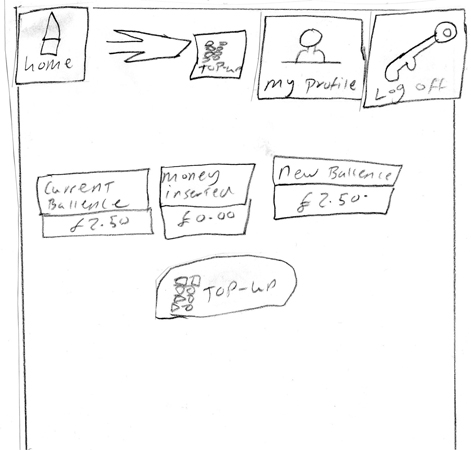 home
TOP-UP
my Profile
Log off
Current
Ballence
£2.50
money
inserted
£0.00
New Ballence
£2.50
TOP-UP